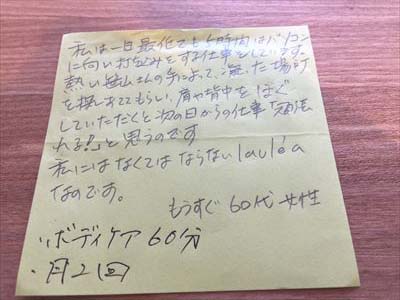 私は一日最低でも5時間はパソコン
に向い打込みをする仕事をしています。
熱い無山さんの手によって、凝った場所
を探しあててもらい、肩や背中をほぐ
していただくと次の日からの仕事「頑張
れる！」と思うのです
私にはなくてはならないlauléa
なのです。
もうすぐ60代 女性
・ボディケア 60分
・月2回